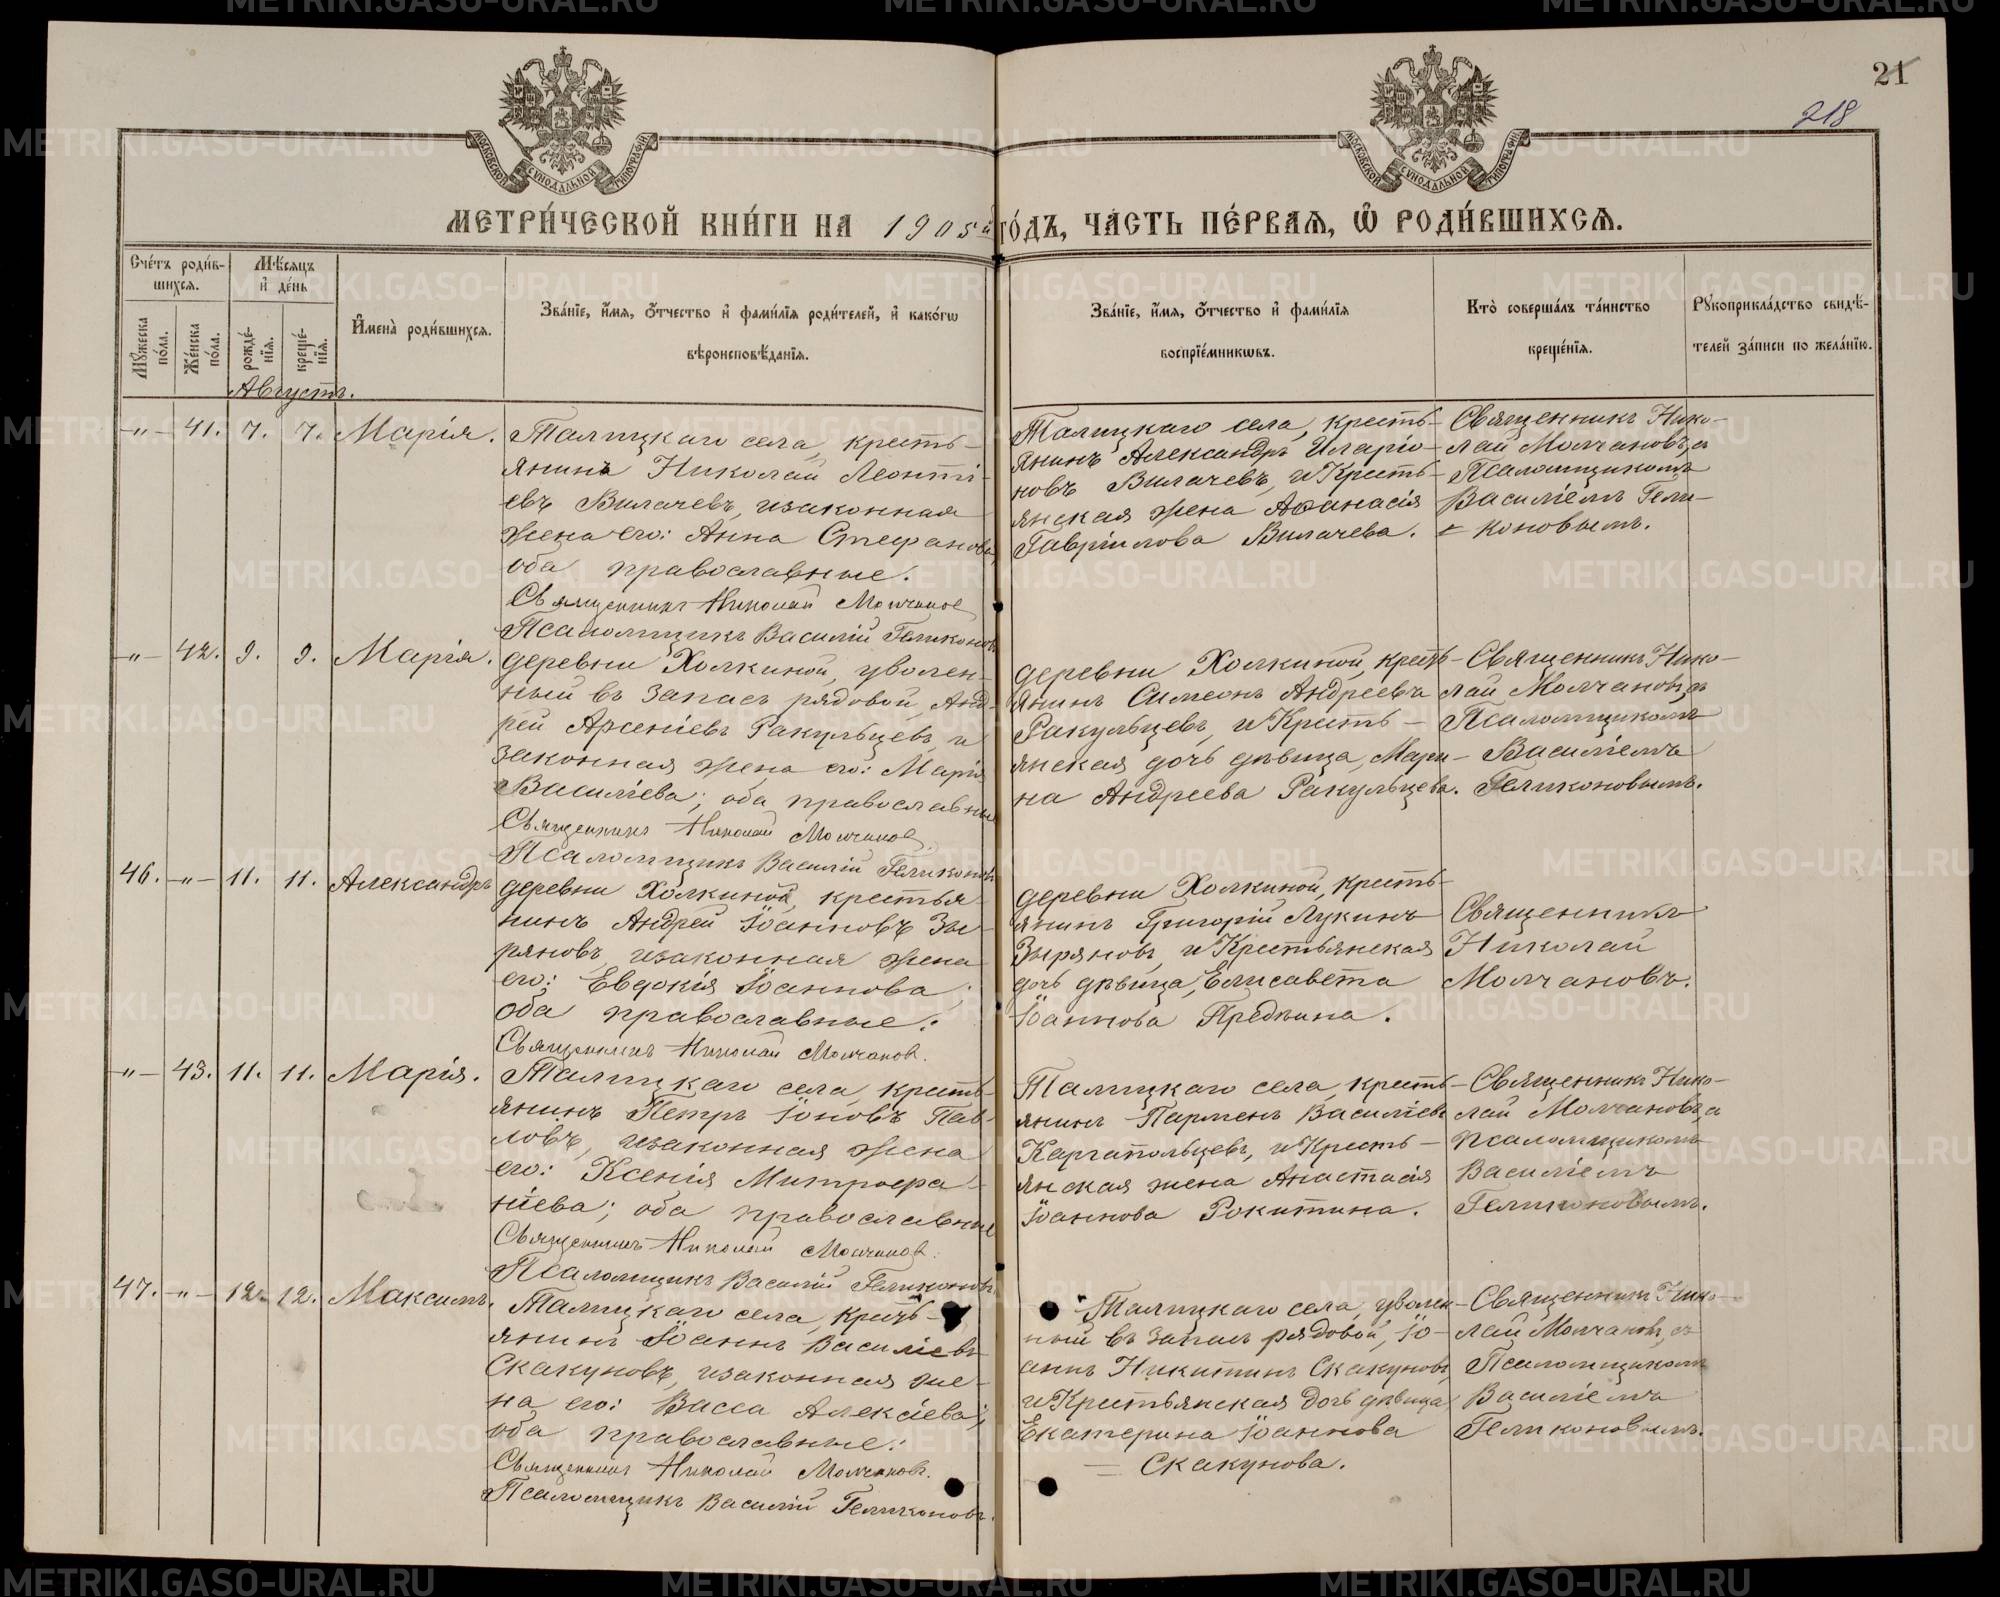 21
218
МОСКОВСКОЙ СѴНОДАЛЬНОЙ ТИПОГРАФІИ
МОСКОВСКОЙ СѴНОДАЛЬНОЙ ТИПОГРАФІИ
МЕТРИ́ЧЕСКОЙ КНИ́ГИ НА 1905й ГО́ДЪ, ЧА́СТЬ ПЕ́РВАЯ, Ѽ РОДИ́ВШИХСЯ.
Сче́тъ роди́в-
шихся.
Мꙋ́жеска по́ла.
Же́нска по́ла.
Мѣ́сяцъ и҆ де́нь
рожде́-нїя.
креще́-нїя.
И҆мена̀ роди́вшихся.
Зва́нїе, и҆́мя, ѻ҆́тчество и҆ фами́лїя роди́телей, и҆ како́гѡ
вѣроисповѣ́данїя.
Зва́нїе, и҆́мя, ѻ҆́тчество и҆ фами́лїя
воспрїе́мникѡвъ.
Кто̀ соверша́лъ та́инство
креще́нїя.
Рꙋкоприкла́дство свидѣ́-
телей за́писи по жела́нїю.
Августъ.
-„- 41. 7. 7. Марія.
Талицкаго села, кресть-
янинъ Николай Леонті-
евъ Вилачевъ, и законная
жена его: Анна Стефанова,
оба православные.
Священникъ Николай Молчановъ
Псаломщикъ Василій Геликоновъ
Талицкаго села, кресть-
янинъ Александръ Иларіо-
новъ Вилачевъ, и Кресть-
янская жена Аѳанасія
Гавріилова Вилачева.
Священникъ Нико-
лай Молчановъ, съ
Псаломщикомъ
Василіемъ Гели-
коновымъ.
-„- 42. 9. 9. Марія.
деревни Холкиной, уволен-
ный въ запасъ рядовой, Анд-
рей Арсеніевъ Ракульцевъ, и
законная жена его: Марія
Василіева; оба православные
Священникъ Николай Молчановъ
Псаломщикъ Василій Геликоновъ
деревни Холкиной, кресть-
янинъ Симеонъ Андреевъ
Ракульцевъ, и Кресть-
янская дочь дѣвица, Мари-
на Андреева Ракульцева.
Священникъ Нико-
лай Молчановъ, съ
Псаломщикомъ
Василіемъ
Геликоновымъ.
46. -„- 11. 11. Александръ
деревни Холкиной, крестья-
нинъ Андрей Іоанновъ Зы-
ряновъ, и законная жена
его: Евдокія Іоаннова;
оба православные.
Священникъ Николай Молчановъ.
деревни Холкиной, кресть-
янинъ Григорій Лукинъ
Зыряновъ, и Крестьянская
дочь дѣвица, Елисавета
Іоаннова Предѣина.
Священникъ
Николай
Молчановъ.
-„- 43. 11. 11. Марія.
Талицкаго села, кресть-
янинъ Петръ Іоновъ Пав-
ловъ, и законная жена
его: Ксенія Митрофа-
ніева; оба православные
Священникъ Николай Молчановъ.
Псаломщикъ Василій Геликоновъ.
Талицкаго села, кресть-
янинъ Парменъ Василіевъ
Каргапольцевъ, и Кресть-
янская жена Анастасія
Іоаннова Рокитина.
Священникъ Нико-
лай Молчановъ, съ
псаломщикомъ
Василіемъ
Геликоновымъ.
47. -„- 12. 12. Максимъ.
Талицкаго села, кресть-
янинъ Іоаннъ Василіевъ
Скакуновъ, и законная же-
на его: Васса Алексіева;
оба православные.
Священникъ Николай Молчановъ.
Псаломщикъ Василій Геликоновъ.
Талицкаго села, уволен-
ный въ запасъ рядовой, Іо-
аннъ Никитинъ Скакуновъ,
и Крестьянская дочь дѣвица
Екатерина Іоаннова
Скакунова.
Священникъ Нико-
лай Молчановъ, съ
Псаломщикомъ
Василіемъ
Геликоновымъ.
METRIKI.GASO-URAL.RU